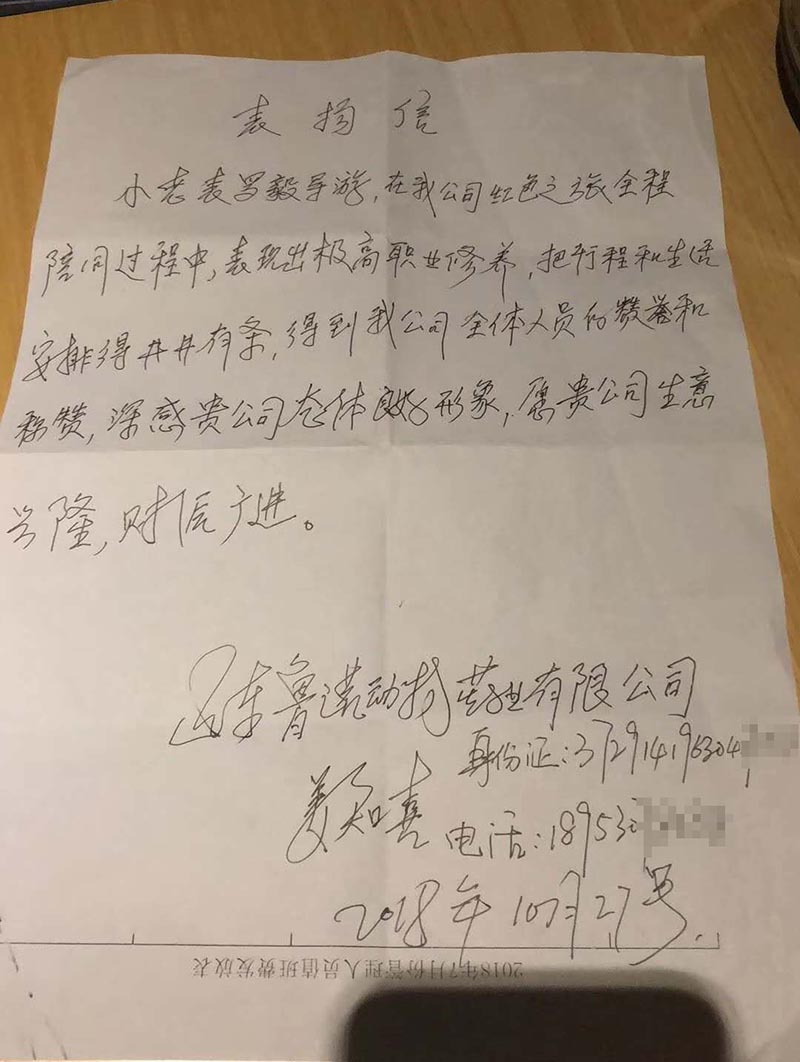 表扬信
小老表罗毅导游,在我公司红色之旅全程
陪同过程中,表现出极高职业修养,把行程和生活
安排得井井有条,得到我公司全体人员的赞誉和
称赞,深感贵公司总体良好形象,愿贵公司生意
兴隆,财源广进。
山东鲁港动物药业有限公司
身份证:372914196304
知喜 电话:18953
2018年10月27号.
2018年7月份管理人员值班费发放表